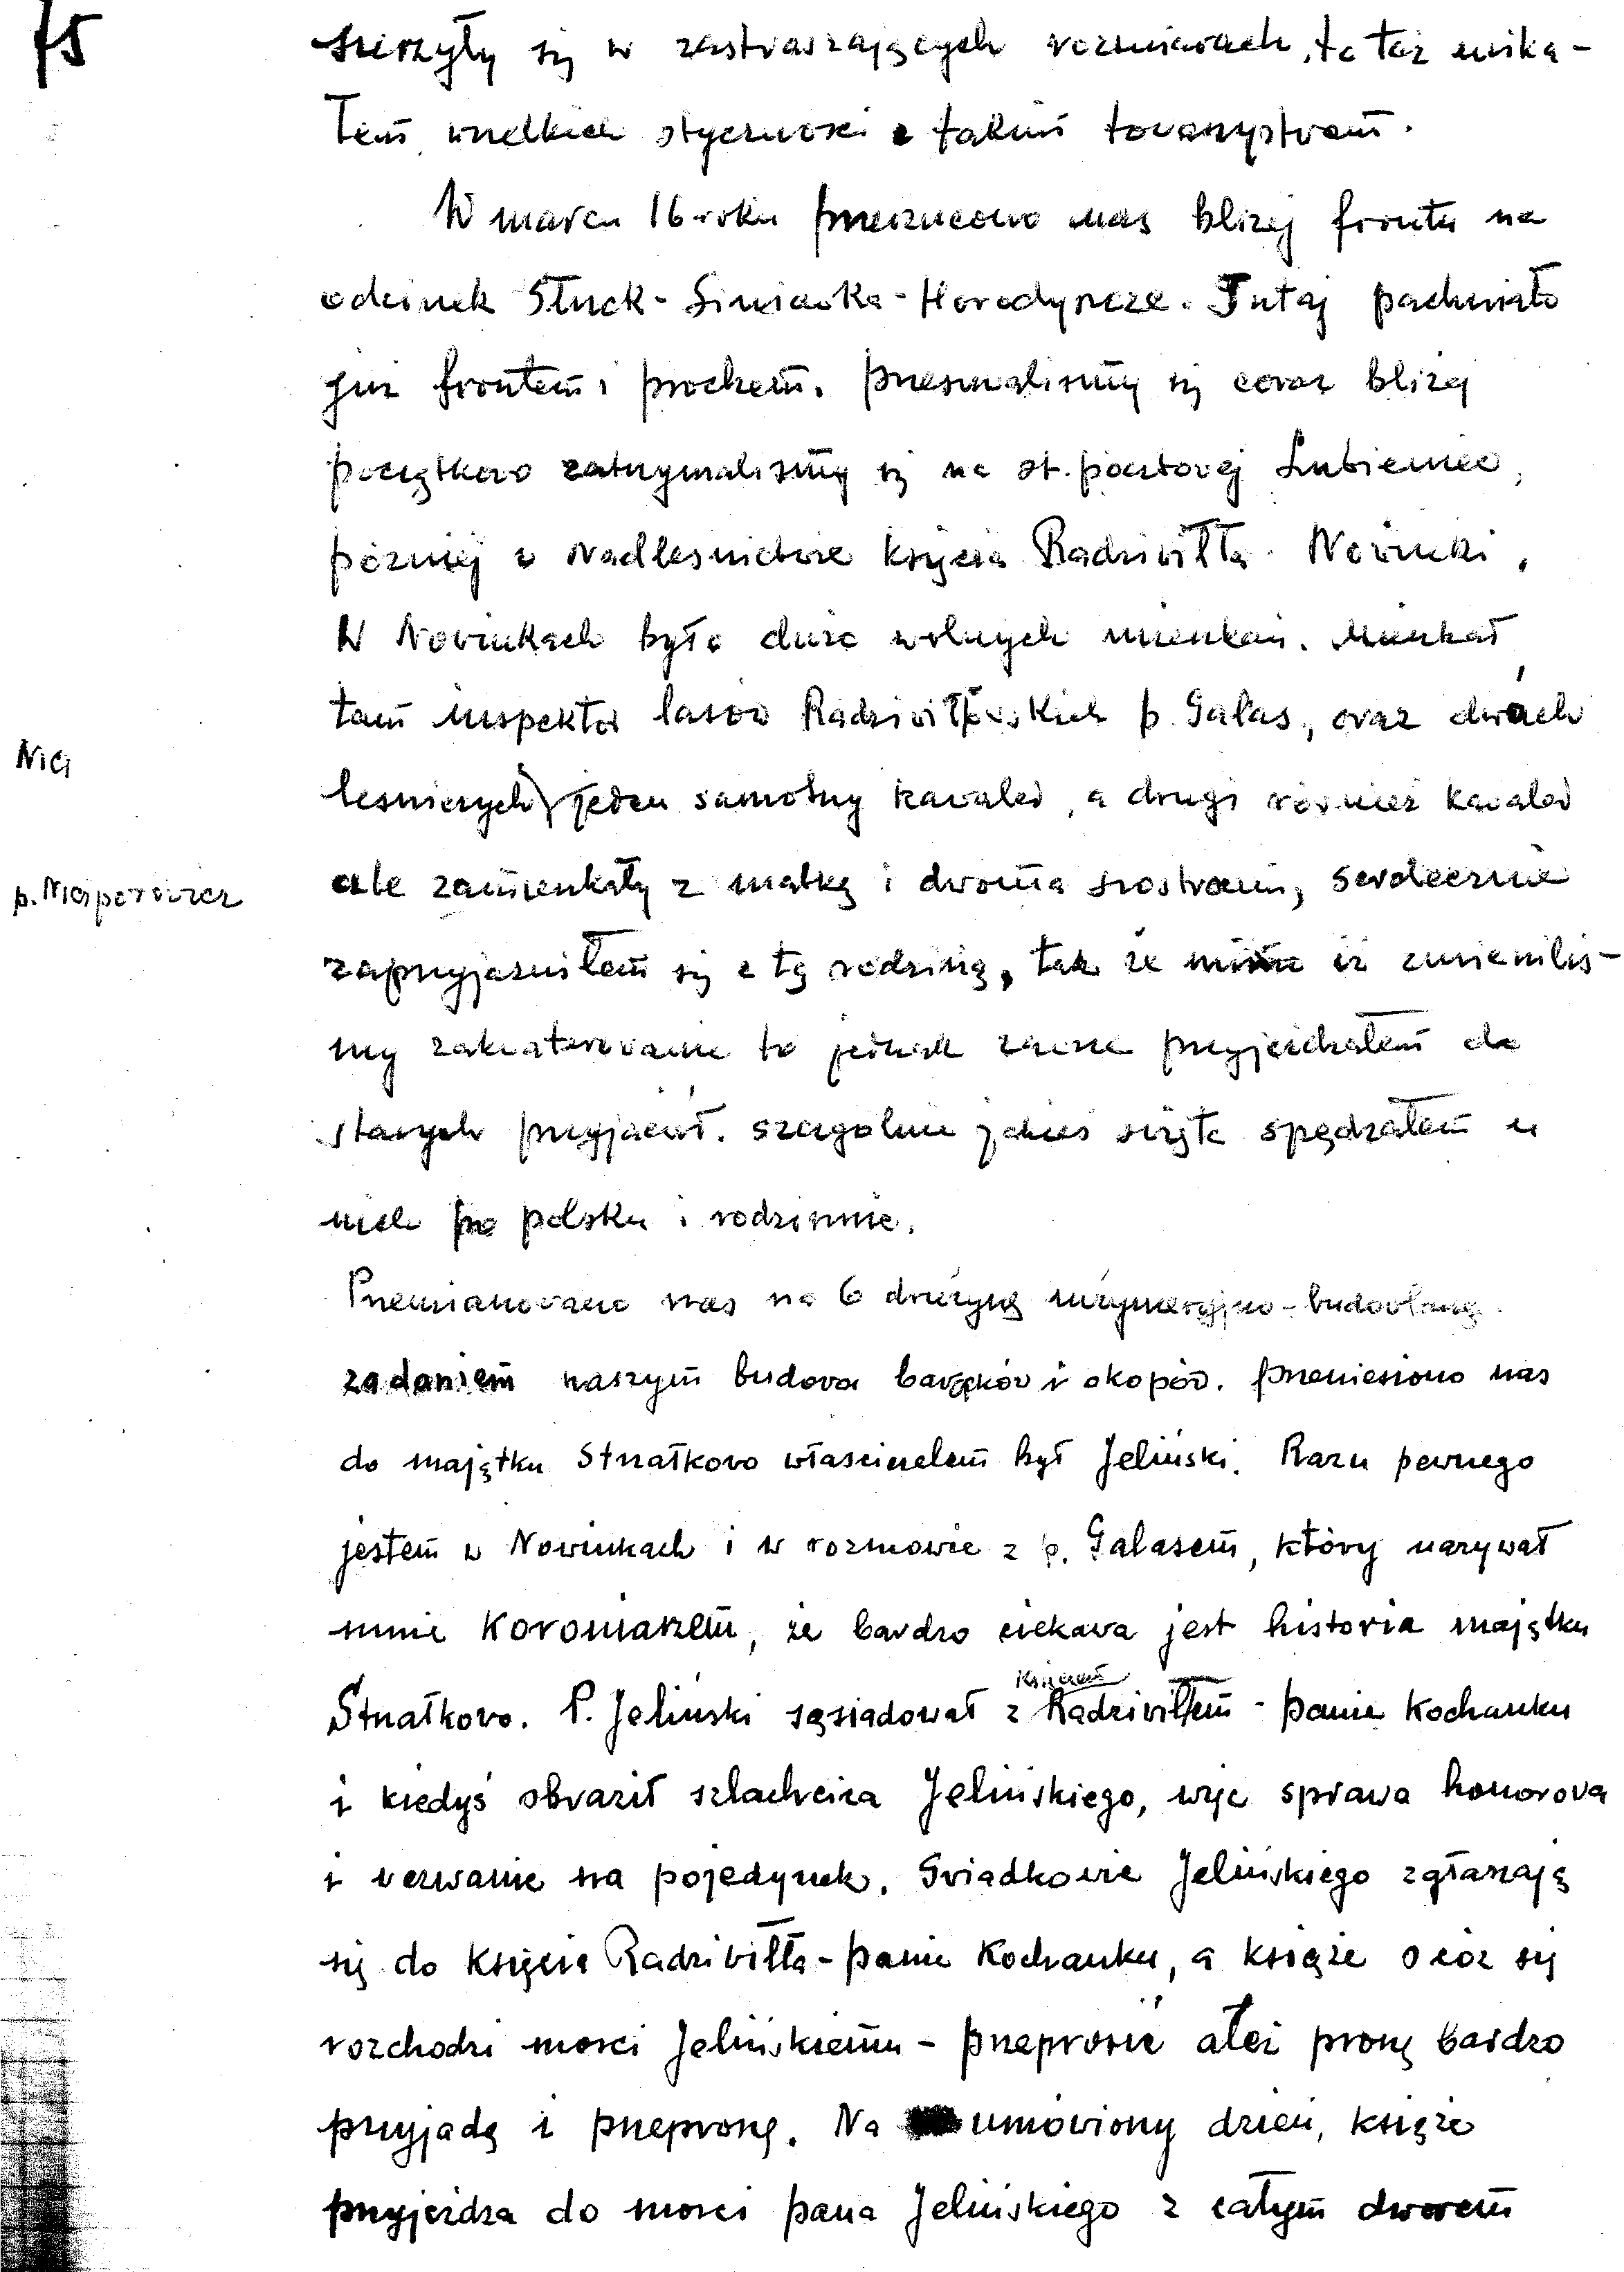 75
szerzyły się w zastraszających rozmiarach, to też unika-
łem wszelkich styczności z takim towarzystwem.
W marcu 16 roku przerzucono nas bliżej frontu na
odcinek Słuck - Siniawka - Horodyszcze. Tutaj pachniało
już frontem i prochem. Przesuwaliśmy się coraz bliżej
początkowo zatrzymaliśmy się na st. pocztowej
później w Nadleśnictwie księcia Radziwiłła Nowinki.
W Nowinkach było dużo wolnych mieszkań. Mieszkał
tam inspektor lasów Radziwiłłowskich p. Galas, oraz dwóch
Nici
leśniczych) jeden samotny kawaler, a drugi również kawaler
ale zamieszkały z matką i dwoma siostrami, serdecznie
p.
zaprzyjaźniłem się z tą rodziną, tak że mimo iż zmieniliś-
my zakwaterowanie to jednak zawsze przyjeżdżałem do
starych przyjaciół. szczególnie jakieś święta spędzałem u
nich po polsku i rodzinnie.
Przemianowano nas na 6 drużynę inżynieryjno-budowlaną
zadaniem naszym budowa baraków i okopów. przeniesiono nas
do majątku Strzałkowo właścicielem był Jeliński. Razu pewnego
jestem w Nowinkach i w rozmowie z p. Galasem, który nazywał
mnie Koroniarzem, że bardzo ciekawa jest historia majątku
Księciem
Strzałkowo. P. Jeliński sąsiadował z Radziwiłłem - panie Kochanku
i kiedyś obraził szlachcica Jelińskiego, więc sprawa honorowa
i wezwanie na pojedynek. Świadkowie Jelińskiego zgłaszają
się do księcia Radziwiłła - panie Kochanku, a książe o cóż się
rozchodzi mości Jelińskiemu - przeprosić ależ proszę bardzo
przyjadę i przeproszę. Na umówiony dzień, książe
przyjeżdża do mości pana Jelińskiego z całym dworem